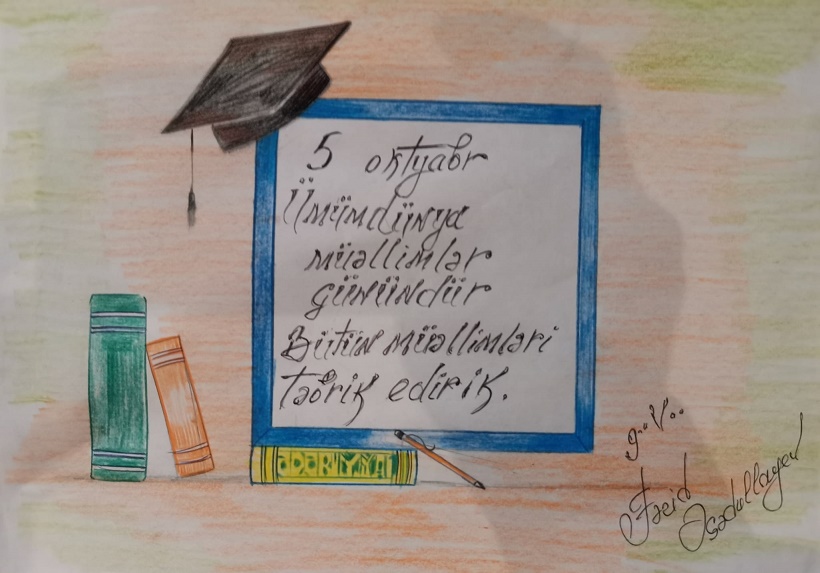 5 oktyabr
Ümümdünya
müəllimlər
günündür
Bütün müəllimləri
təbrik edirik.
ƏDƏBİYYAT
Əsədullayev